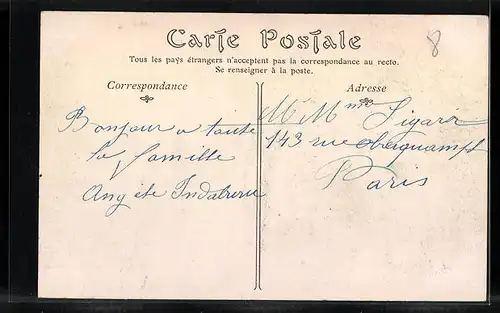 Carte Postale
8
Tous les pays étrangers n'acceptent pas la correspondance au recto.
Se renseigner à la poste.
Correspondance
Adresse
Bonjour a toute
la famille
M Mme
143 rue oberquampf
Paris